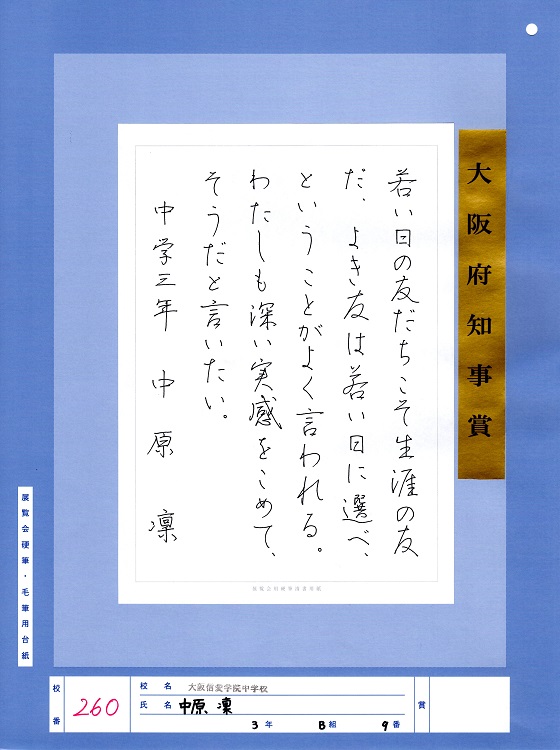 大阪府知事賞
若い日の友だちこそ生涯の友
だ、よき友は若い日に選べ、
ということがよく言われる。
わたしも深い実感をこめて、
そうだと言いたい。
中学三年 中原 凜
展覧会硬筆・毛筆用台紙
校番 260
校名 大阪信愛学院中学校
氏名 中原 凜
3年 B組 9番
賞